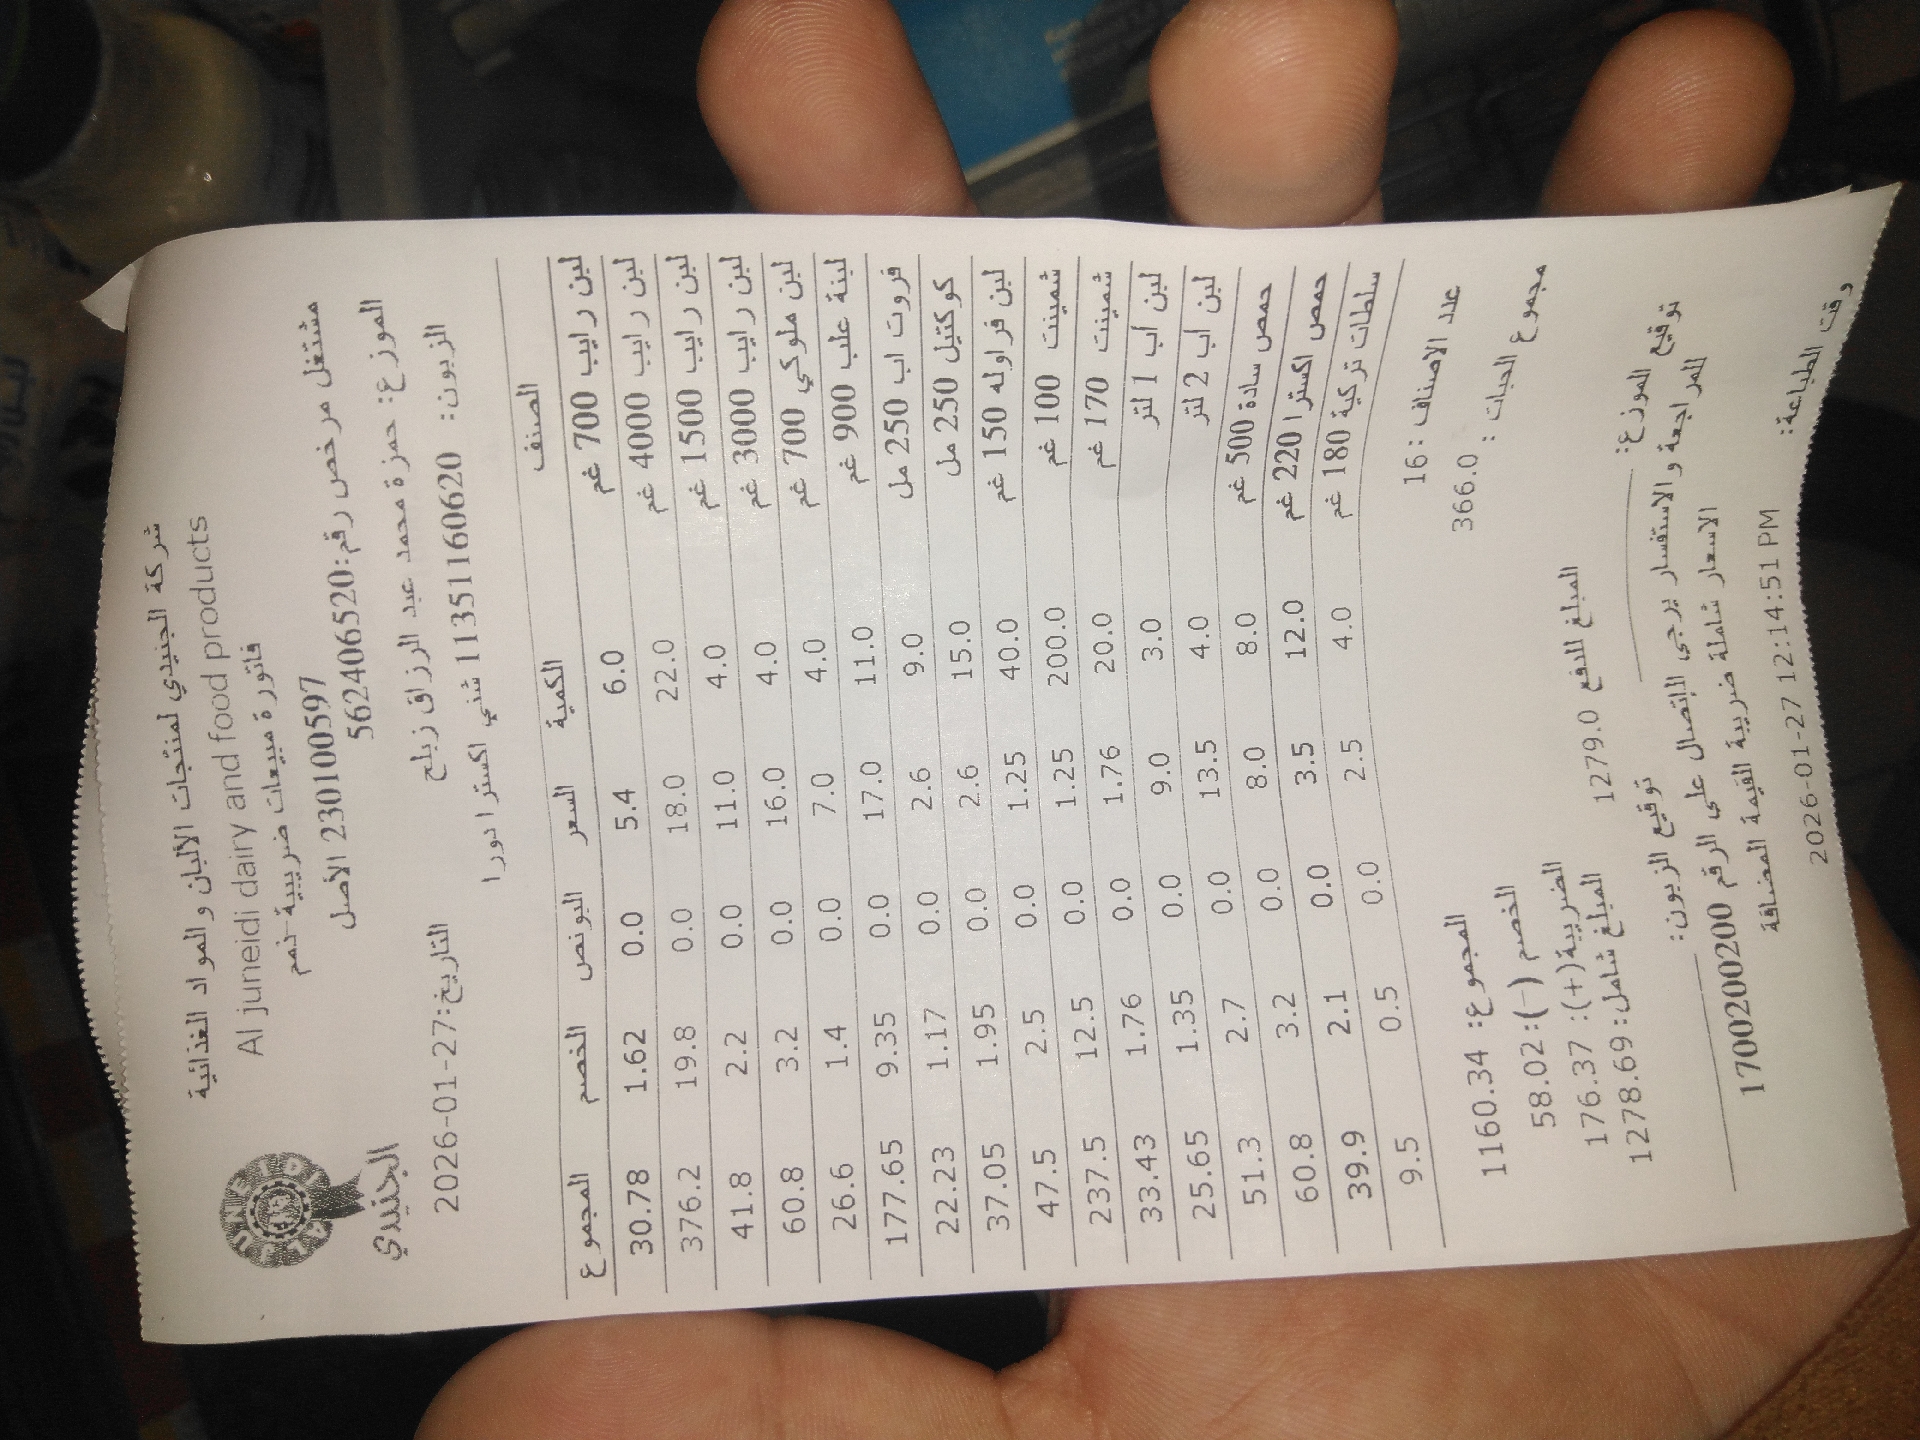 شركة الجنيدي لمنتجات الألبان والمواد الغذائية
Al juneidi dairy and food products
فاتورة مبيعات ضريبية-ذمم
230100597 الأصل
مشتغل مرخص رقم:562406520
AL JUNEIDI
الجنيدي
الموزع: حمزة محمد عبد الرزاق زبلح
التاريخ:27-01-2026
الزبون: 11351160620 شني اكسترا دورا
الصنف الكمية السعر البونص الخصم المجموع
لبن رايب 700 غم 6.0 5.4 0.0 1.62 30.78
لبن رايب 4000 غم 22.0 18.0 0.0 19.8 376.2
لبن رايب 1500 غم 4.0 11.0 0.0 2.2 41.8
لبن رايب 3000 غم 4.0 16.0 0.0 3.2 60.8
لبن ملوكي 700 غم 4.0 7.0 0.0 1.4 26.6
لبنة علب 900 غم 11.0 17.0 0.0 9.35 177.65
فروت اب 250 مل 9.0 2.6 0.0 1.17 22.23
كوكتيل 250 مل 15.0 2.6 0.0 1.95 37.05
لبن فراوله 150 غم 40.0 1.25 0.0 2.5 47.5
شمينت 100 غم 200.0 1.25 0.0 12.5 237.5
شمينت 170 غم 20.0 1.76 0.0 1.76 33.43
لبن أب 1 لتر 3.0 9.0 0.0 1.35 25.65
لبن اب 2 لتر 4.0 13.5 0.0 2.7 51.3
حمص سادة 500 غم 8.0 8.0 0.0 3.2 60.8
حمص اكسترا 220 غم 12.0 3.5 0.0 2.1 39.9
سلطات تركية 180 غم 4.0 2.5 0.0 0.5 9.5
عدد الاصناف : 16
المجموع: 1160.34
مجموع الحبات : 366.0
الخصم (-): 58.02
الضريبة(+): 176.37
المبلغ للدفع 1279.0
المبلغ شامل: 1278.69
توقيع الموزع:
توقيع الزبون:
للمراجعة والاستفسار يرجى الإتصال على الرقم 1700200200
الاسعار شاملة ضريبة القيمة المضافة
وقت الطباعة: 2026-01-27 12:14:51 PM